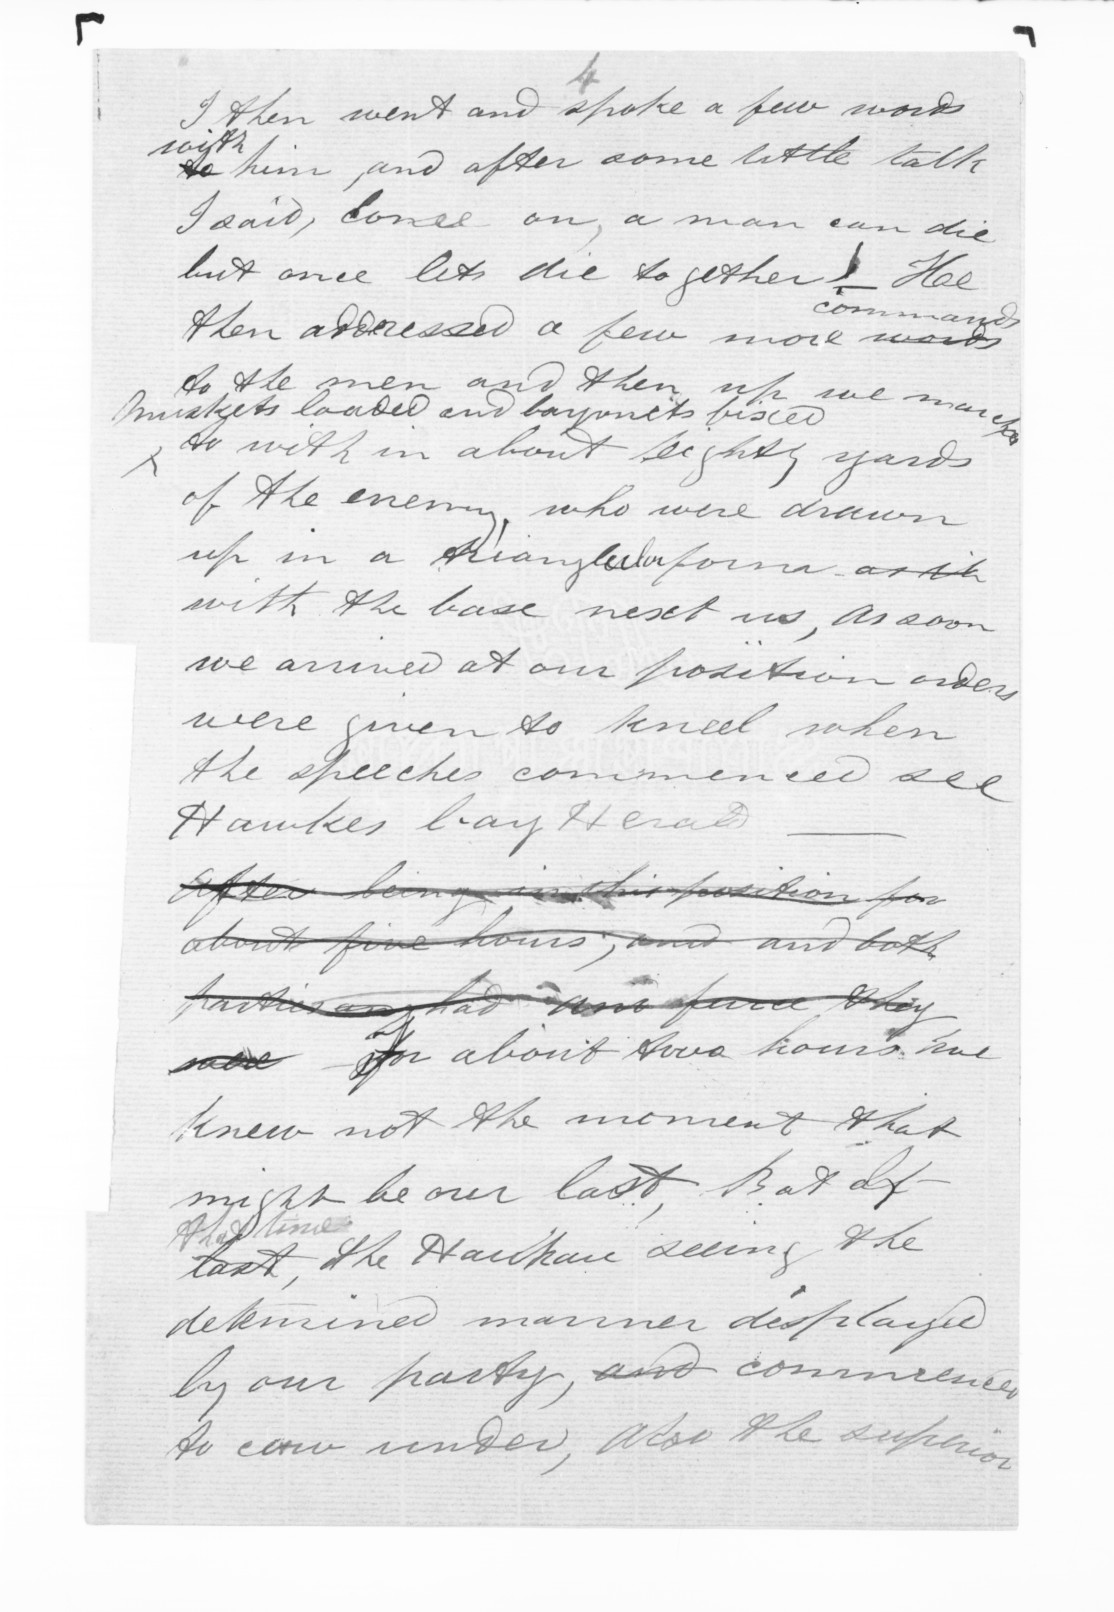 4
I then went and spoke a few words
with
to him, and after some little talk
I said, Come on, a man can die
but once lets die together! He
commands
then addressed a few more words
to the men and then up we marched
muskets loaded and bayonets fixed
to with in about eighty yards
of the enemy, who were drawn
up in a triangular form as it
with the base next us, As soon
we arrived at our position orders
were given to kneel when
the speeches commenced see
Hawkes bay Herald
After being in this position for
about five hours, and and both
parties had they
were for about two hours we
knew not the moment that
might be our last, But at
that time
last, the Hauhau seeing the
determined manner displayed
by our party, and commenced
to cow under, also the superior